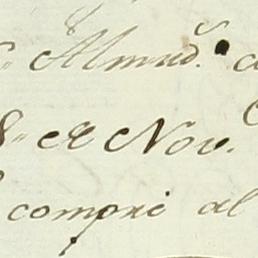 Almud.ˢ
8 de Nov.
compré al